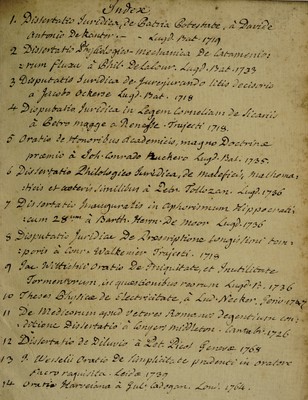 Index
1. Dissertatio Juridica, de Patria Potestate, à Davide
Antonio
Lugd. Bat. 1719
2 Dissertatio Physiologico-mechanica de Catameniorum
fluxu à Phil. de Lalour. Lugd. Bat. 1733
3 Disputatio Juridica de Jurejurando litis decisorio
à Jacobo Ockerse Lugd. Bat. 1718
4 Disputatio Juridica in Legem Corneliam de Sicariis
à Petro Trajecti 1718.
5 Oratio de Honoribus Academicis, magno Doctrinæ
præmio à Joh. Conrado Ruckero Lugd. Bat. 1735.
6 Dissertatio Philologico Juridica, de maleficis, Mathema-
ticis et cæteris similibus à Petr. Tollozan. Lugd. 1736
7 Dissertatio Inauguralis in Aphorismum Hippocrati-
cum 28 à Barth. Herm. De Moor Lugd. 1736
8 Disputatio Juridica De Præscriptione longissimi tem-
poris à Conr. Walkenier Trajecti. 1718
9 Jac. Wittichii Oratio De Iniquitate, et Inutilitate
Tormentorum, in quæstionibus reorum Lugd. B. 1736
10 Theses Physicæ de Electricitate, à Lud. Necker. Genev. 1747
11 De Medicorum apud veteres Romanos degentium con-
ditione Dissertatio à Conyers middleton. Cantab. 1726
12 Dissertatio de Diluvio à Pet. Picot Genevæ 1765
13 J. Wesselii Oratio de Simplicitate prudenti in oratore
sacro requisita. Leidæ 1739
14. Oratio Harveiana à Gul. Cadogan. Lon. 1764.